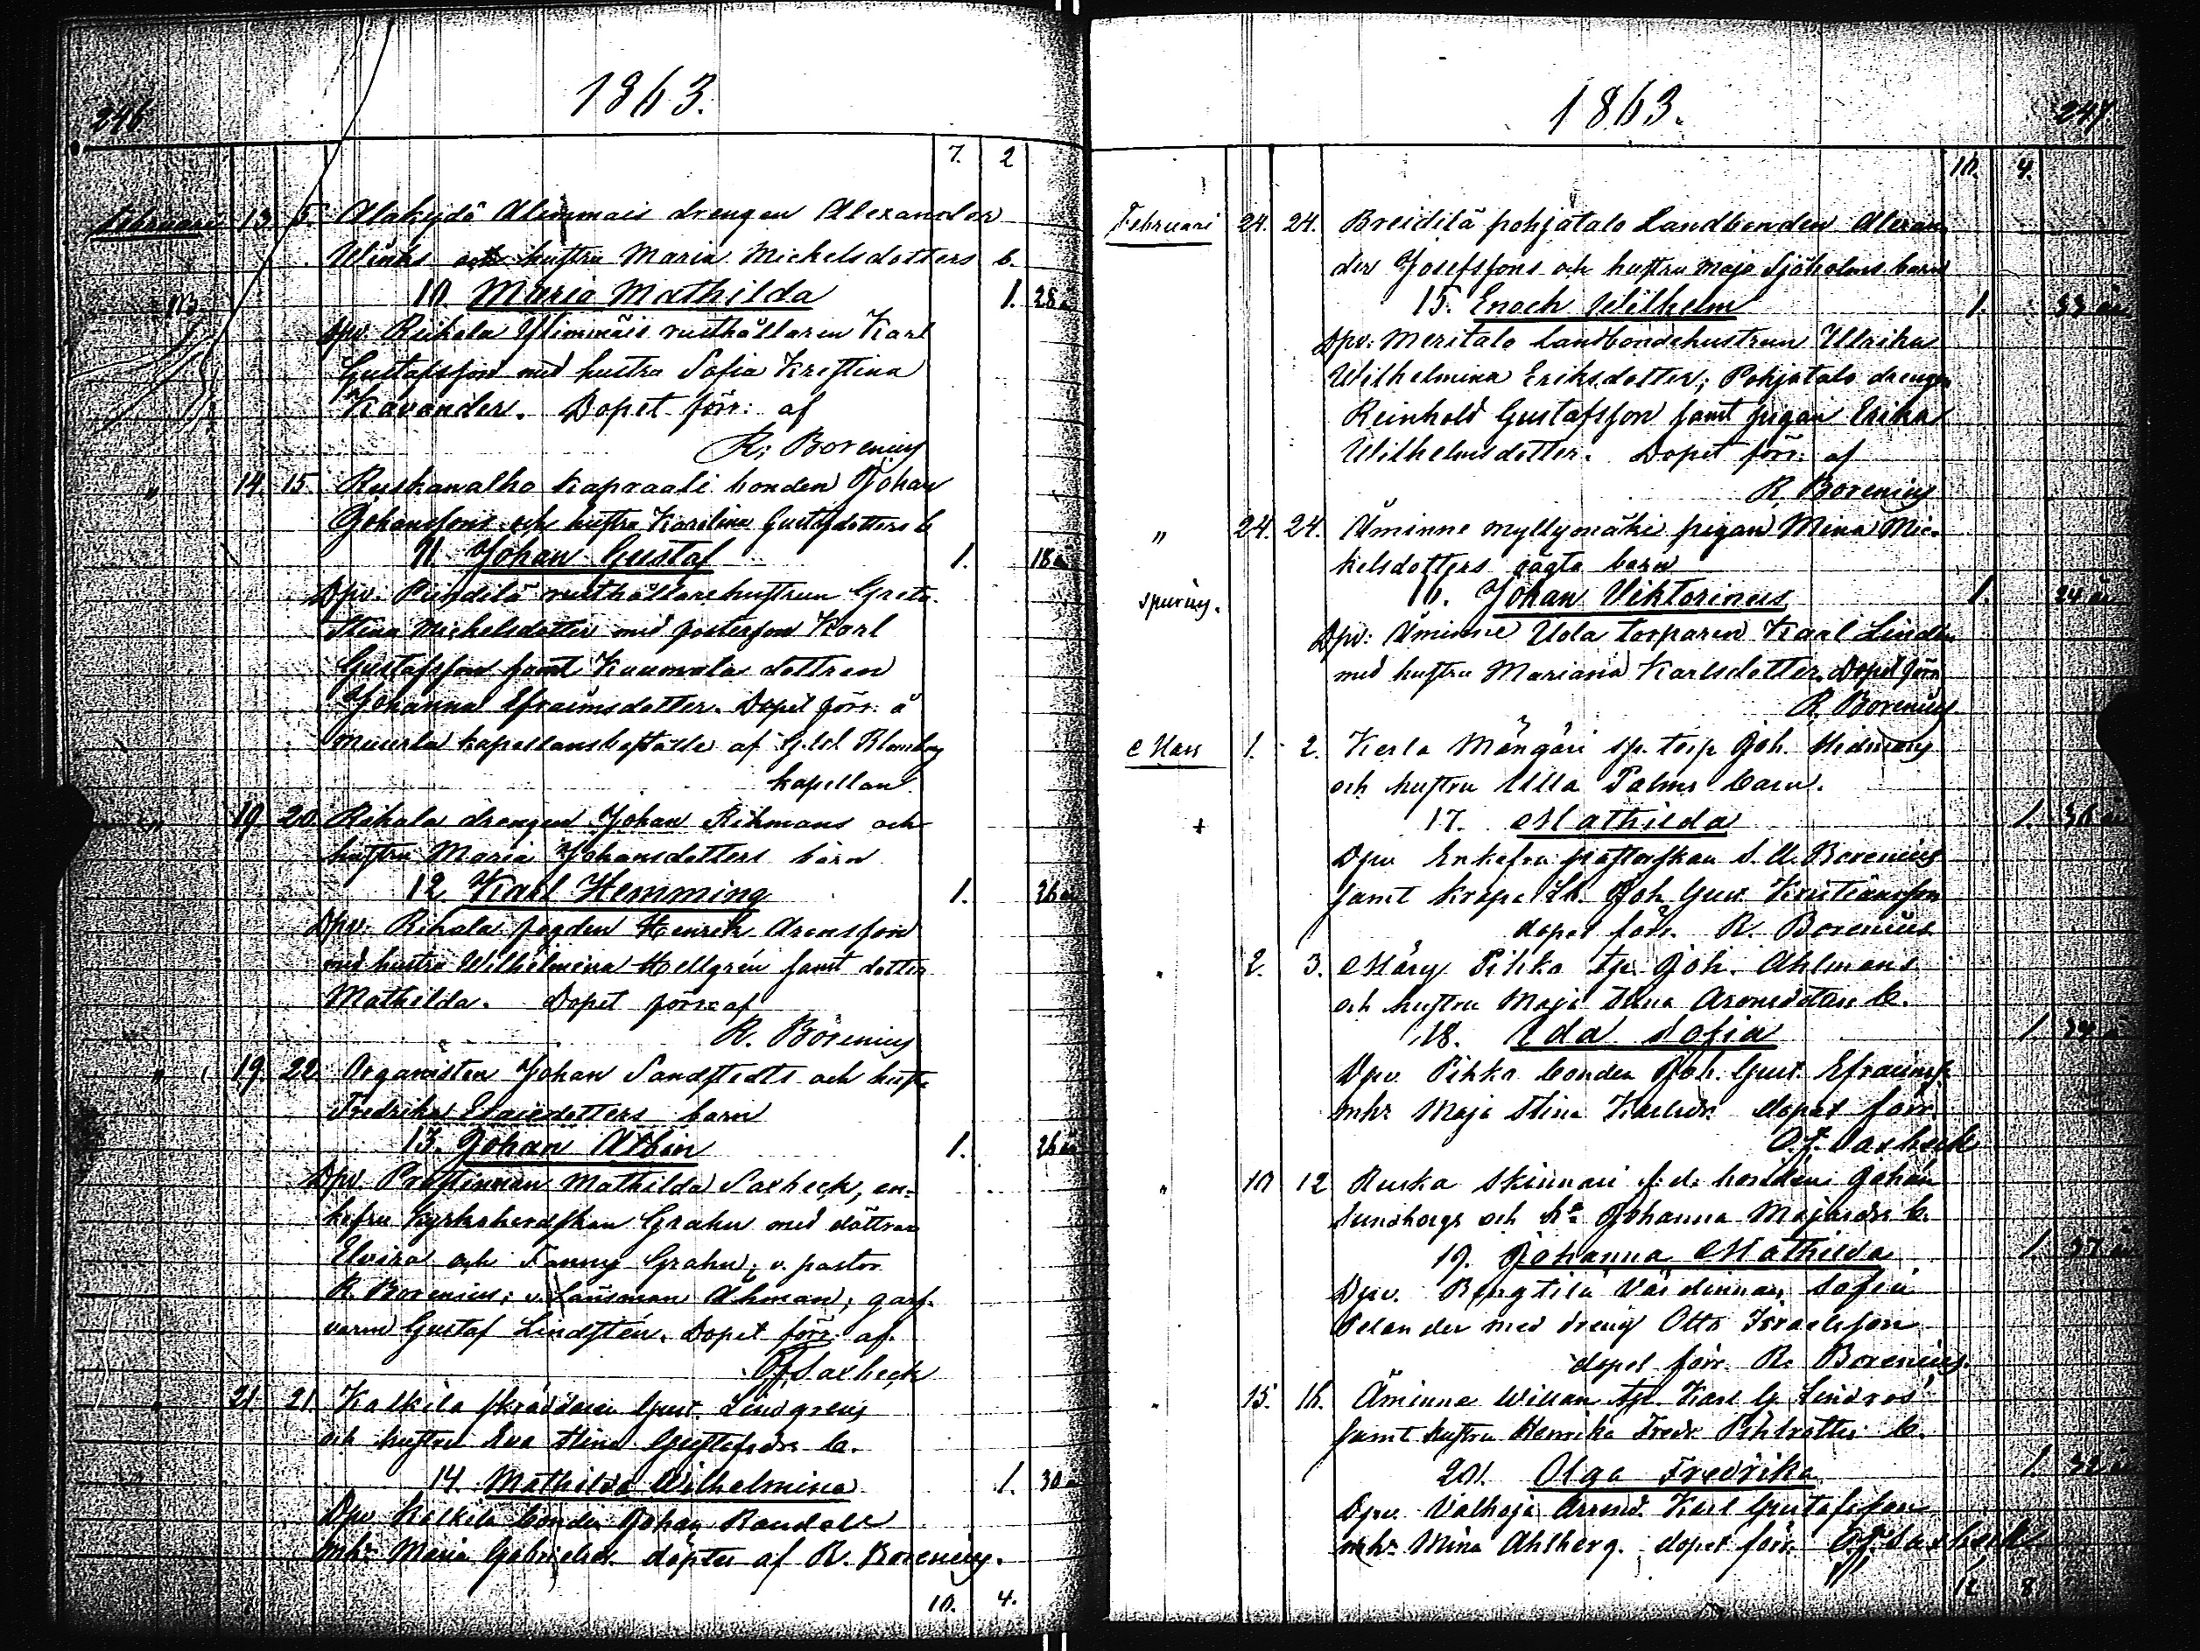 246
1863.
7. 2
Februari 13. 5. Alakydö Alimmais drengen Alexander
Winks och hustru Maria Michelsdotters b.
10. Maria Mathilda 1. 28 å
Dpv. Reikola Ylimmäis rusthållaren Karl
Gustafsson med hustru Sofia Kristina
Kavander. Dopet förr: af
R. Borenius
" 14. 15. Ruskanalho kapraali bonden Johan
Johanssons och hustru Karolina Gustafsdotters b
11. Johan Gustaf 1. 18 å
Dpv. Pundilä rusthållarehustrun Greta
Stina Michelsdotter med fosterson Karl
Gustafsson samt Kaumola dottren
Johanna Efraimsdotter. Dopet förr. å
Muurla kapellansboställe af
kapellan
" 19 20. Rikala drengen Johan Rikmans och
hustru Maria Johansdotters barn
12 Karl Hemming 1. 26 år
Dpv. Rikala fogden Henrik Aronsson
med hustru Wilhelmina Hellgrén samt dotter
Mathilda. Dopet förr. af
R. Borenius
" 19. 22 Organisten Johan Sandstedts och hustr.
Fredrika Elaiedotters barn
13. Johan Albin 1. 26 år
Dpv. Prostinnan Mathilda Saxbeck, en-
kefru Kyrkoherdskan Grahn med döttrar
Elvira och Fanny Grahn, v. pastor
R. Borenius; v. Länsman Åhman; garf-
varen Gustaf Lindstén. Dopet förr. af
O.F. Saxbeck
" 21. 21. Kalkila skräddaren Gust. Lindgrens
och hustru Eva Stina Gustafsdr. b.
14. Mathilda Wilhelmina 1. 30 å
Dpv. Kalkila bonden Johan Randell
mhr Maria Gabrielsdr. döptes af R. Borenius.
10. 4.
1863.
247
10. 4.
Februari 24. 24. Breidilä pohjatalo Landbonden Alexan-
der Josefssons och hustru Maja Sjöholms barn
15. Enoch Wilhelm 1. 33 år
Dpv: Meritalo landbondehustrun Ulrika
Wilhelmina Eriksdotter; Pohjatalo drengen
Reinhold Gustafsson samt pigan Erika
Wilhelmsdotter. Dopet förr. af
R. Borenius
" 24. 24. Åminne myllymäki pigan Mina Mic-
kelsdotters oägta barn
spurius. 16. Johan Viktorinus 1. 24 år
Dpv: Åminne Uola torparen Karl Lindén
med hustru Mariana Karlsdotter. Dopet förr.
R. Borenius
Mars 1. 2. Karla Mängäri sp. torp. Joh. Hedmans
och hustru Ulla Palms barn.
+ 17. Mathilda 1. 36 år
Dpv Enkefru pastorskan S. U. Borenius
samt Joh. Gust. Kristiansson
dopet förr. R. Borenius
" 2. 3. Märy Pihka tp. Joh. Ahlmans
och hustru Maja Stina Aronsdotters b.
18. Ida Sofia 1. 34 å
Dpv. Pihka bonden Joh. Gust. Efraimss.
mhr Maja Stina Karlsdr. dopet förr.
O.F. Saxbeck
" 10 12 Ruska Skinnari f. d. bonden Johan
Sundbergs och ha Johanna Majasdr. b.
19. Johanna Mathilda 1. 37 år
Dpv. Bengtilä Värdinnan Sofia
Pelander med dreng Otto Israelsson
dopet förr. R. Borenius.
" 15. 16. Åminne Willan tp. Karl G. Lindros'
samt hustru Henrika Fredr. b.
20. Olga Fredrika 1. 32 år
Dpv. Valhoja Arrend. Karl Gustafsson
mhr Mina Ahlberg. dopet förr. O.F. Saxbeck
12 8